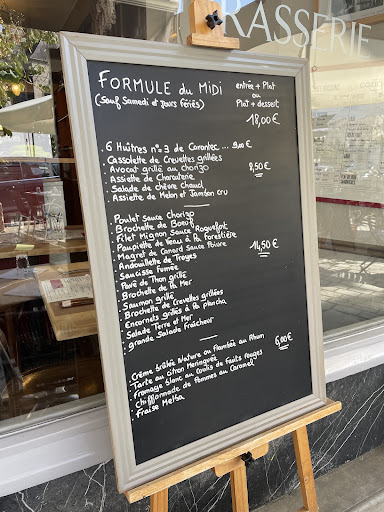 BRASSERIE
FORMULE DU MIDI
(Sauf Samedi et Jours fériés)
entrée + Plat
ou
Plat + dessert
18,00 €
. 6 Huîtres n° 3 de Carantec ... 9,00 €
. Cassolette de Crevettes grillées
. Avocat grillé au chorizo
. Assiette de Charcuterie
. Salade de chèvre chaud
. Assiette de Melon et Jambon cru
8,50 €
. Poulet Sauce Chorizo
. Brochette de Boeuf
. Filet Mignon Sauce Roquefort
. Paupiette de Veau à la Forestière
. Magret de Canard Sauce Poivre
. Andouillette de Troyes
. Saucisse fumée
. Pavé de Thon grillé
. Brochette de la Mer
. Saumon grillé
. Brochette de Crevettes grillées
. Encornets grillés à la plancha
. Salade Terre et Mer
. grande Salade Fraîcheur
14,50 €
. Crème brûlée Nature ou Flambée au Rhum
. Tarte au citron Meringuée
. Fromage blanc au Coulis de fruits rouges
. Chiffonnade de Pommes au Caramel
. Fraise Melba
6,00 €